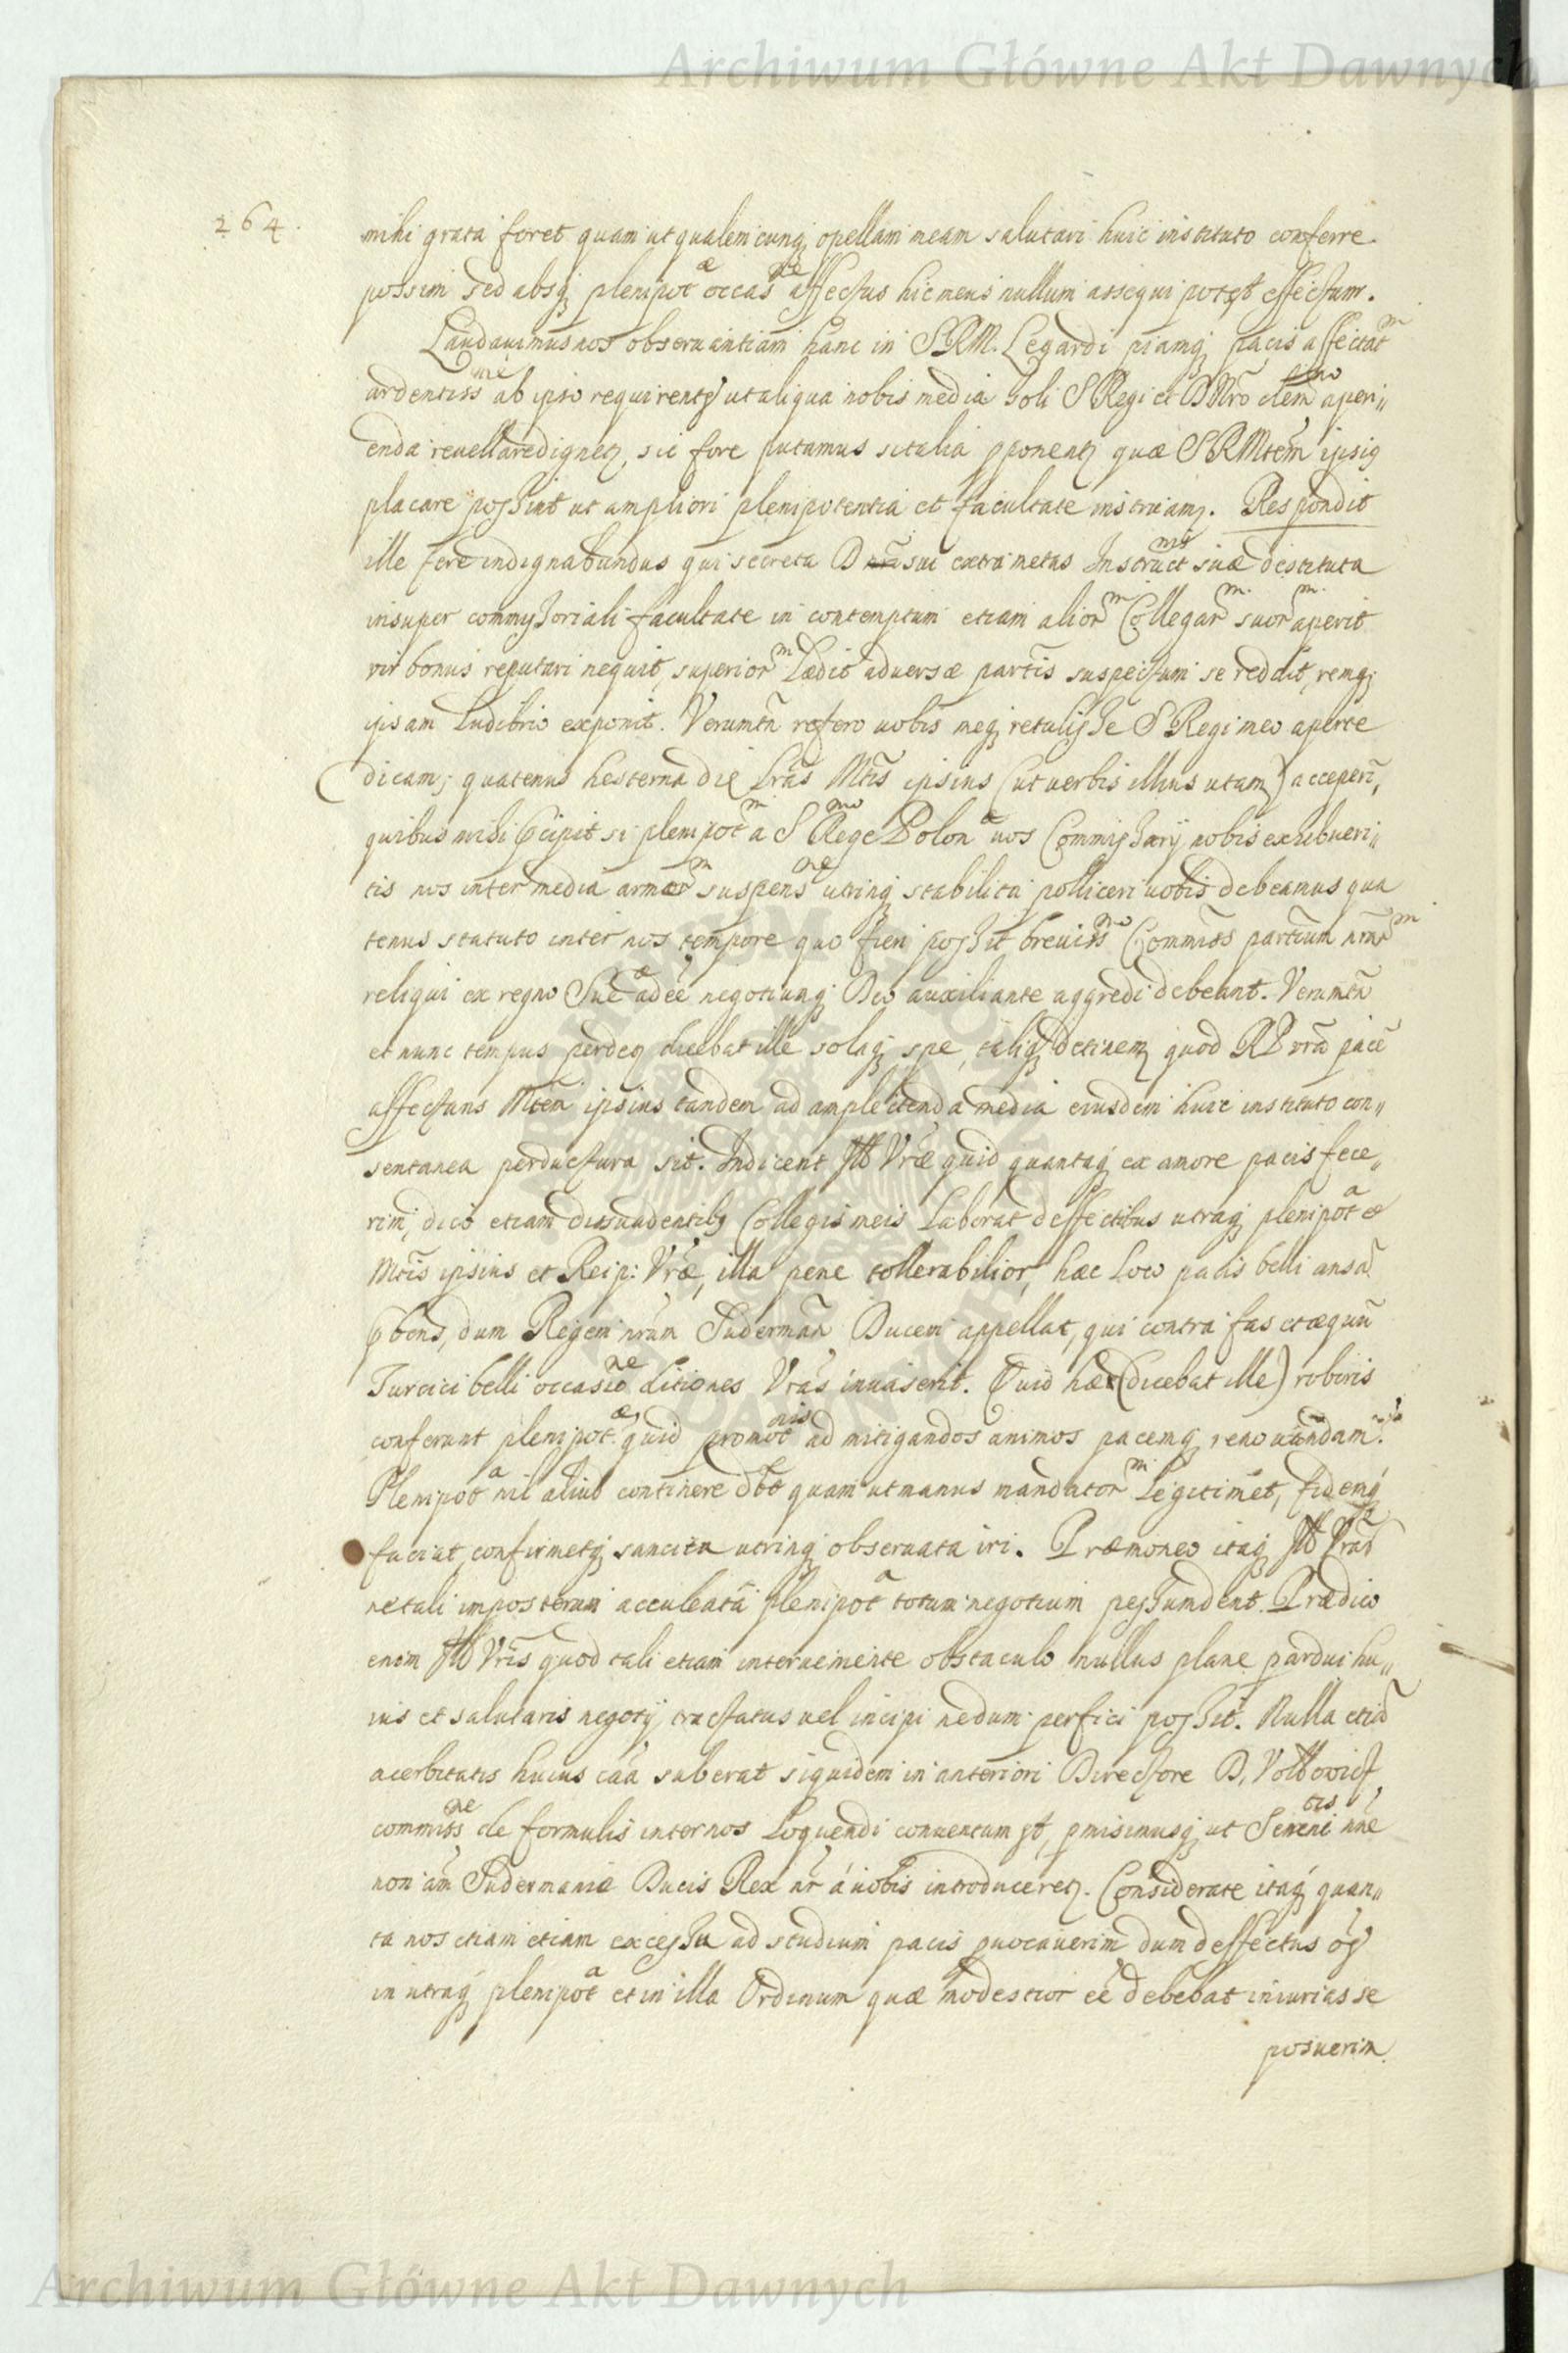 Archiwum Główne Akt Dawnych
264.
mihi grata foret quam ut qualemcunq opellam meam salutari huic instituto conferre
possim sed absq plenipot æ occas ne affectus hic meus nullum assequi potest effectum.
Laudavimus nos observantiam hanc in SRM. Legardi piamq pacis affectat m
ardentiss me ab ipso requirentes ut aliqua nobis media soli S Regi et D Nro clem mo aperi„
enda revellare dignetz, sic fore putamus si talia pponentz quæ SRMtem ipsig
placare possint ut ampliori plenipotentia et facultate instruamz. Respondit
ille fere indignabundus qui secreta D sui extra metas Instruct nis suæ destituta
insuper commyssoriali facultate in contemptum etiam alior m Collegar m suor m aperit
vir bonus reputari nequit, superior m Lædit adversæ partis suspectum se reddit, remq
ipsam Ludibrio exponit. Verumtn refero vobis meq retulisse S Regi meo aperte
dicam; quatenus hesterna die Lras Mtis ipsius (ut verbis illius utam) acceperi,
quibus mihi pcipit si plenipot m a S mo Rege Polon æ vos Commissarij nobis exhibueri„
tis nos inter media armor m suspens ne utrinq stabilita polliceri vobis debeamus qua
tenus statuto inter nos tempore quo fieri possit breviss mo Commiss partium nrar m
reliqui ex regno Sue æ adeē negotiumq Deo auxiliante aggredi debeant. Verumtn
et nunc tempus perdez dicebat ille solaq spe, taliq detinemz quod RP vra pacē
affectans Mtem ipsius tandem ad amplectenda media eiusdem huic instituto con„
sentanea perductura sit. Indicent Ill Vræ quid quantaq ex amore pacis fece„
rim, dico etiam dissuadentibq Collegis meis Laborat deffectibus utraq plenipot a et
Mtis ipsius et Reip: Vræ, illa pene tollerabilior, hæc Loco pacis belli ansā
pbens, dum Regem nrum Sudermān Ducem appellat, qui contra fas et æquū
Turcici belli occasio ne ditiones Vras invaserit. Quid hæc (dicebat ille) roboris
conferunt plenipot æ, quid promot nis ad mitigandos animos pacemq renovandam?
Plenipot a nil aliud continere dbt quam ut manus mandator m Legitimet, fidemq
faciat, confirmetq sancita utrinq observata iri. Præmoneo itaq Ill Vras
ne tali imposterum acculeatā plenipot a totum negotium pessumdent. Prædico
enim Ill Vris quod tali etiam interveniente obstaculo nullus plane pardui hu„
ius et salutaris negotij tractatus vel incipi nedum perfici possit. Nulla etiā
acerbitatis huius caa suberat siquidem in anteriori Directore D. Vollovicij
commiss ne de formulis inter nos Loquendi conventum est, pmisimusq ut Sereni tis nre
non am Sudermaniæ Ducis Rex nr á vobis introduceretz. Considerate itaq quan„
ta nos etiam etiam excessu ad studium pacis pvocaverim dum deffectus oēs
in utraq plenipot a et in illa Ordinum quæ modestior eē debebat iniurias se
posuerim
Archiwum Główne Akt Dawnych